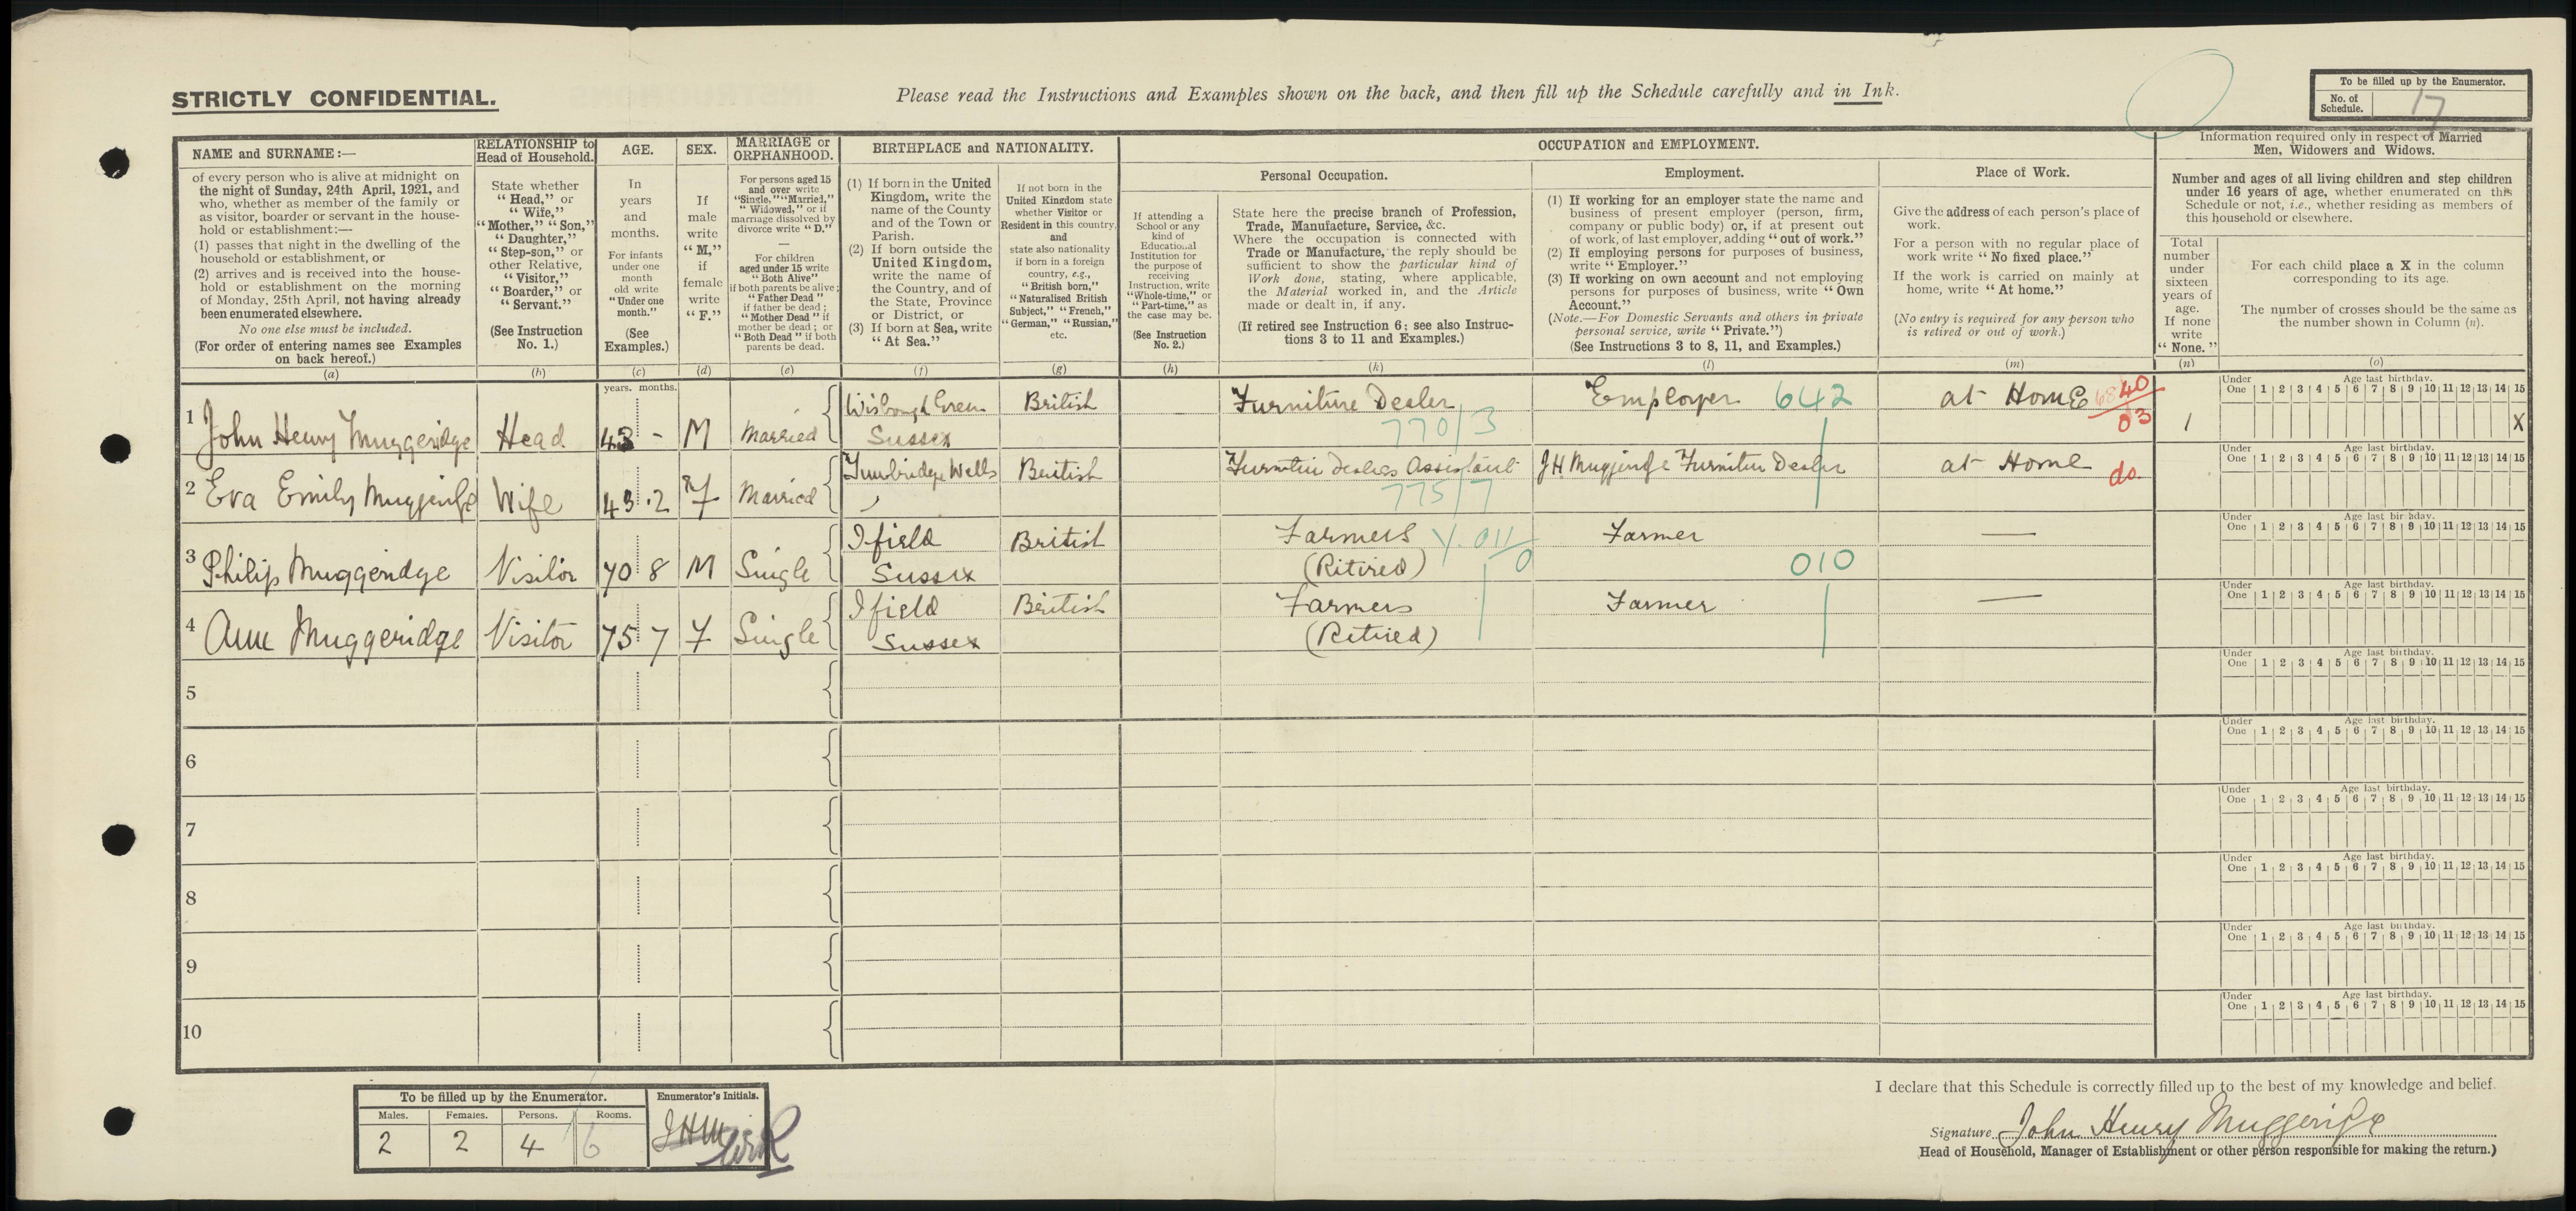 STRICTLY CONFIDENTIAL.
Please read the Instructions and Examples shown on the back, and then fill up the Schedule carefully and in Ink.
To be filled up by the Enumerator.
No. of Schedule. 17
NAME and SURNAME:—
of every person who is alive at midnight on
the night of Sunday, 24th April, 1921, and
who, whether as member of the family or
as visitor, boarder or servant in the house-
hold or establishment:—
(1) passes that night in the dwelling of the
household or establishment, or
(2) arrives and is received into the house-
hold or establishment on the morning
of Monday, 25th April, not having already
been enumerated elsewhere.
No one else must be included.
(For order of entering names see Examples
on back hereof.)
(a)
RELATIONSHIP to
Head of Household.
State whether
"Head," or
"Wife,"
"Mother," "Son,"
"Daughter,"
"Step-son," or
other Relative,
"Visitor,"
"Boarder," or
"Servant."
(See Instruction
No. 1.)
(b)
AGE.
In
years
and
months.
For infants
under one
month
old write
"Under one
month."
(See
Examples.)
(c)
SEX.
If
male
write
"M,"
if
female
write
"F."
(d)
MARRIAGE or
ORPHANHOOD.
For persons aged 15
and over write
"Single," "Married,"
"Widowed," or if
marriage dissolved by
divorce write "D."
—
For children
aged under 15 write
"Both Alive"
if both parents be alive;
"Father Dead"
if father be dead;
"Mother Dead" if
mother be dead; or
"Both Dead" if both
parents be dead.
(e)
BIRTHPLACE and NATIONALITY.
(1) If born in the United
Kingdom, write the
name of the County
and of the Town or
Parish.
(2) If born outside the
United Kingdom,
write the name of
the Country, and of
the State, Province
or District, or
(3) If born at Sea, write
"At Sea."
(f)
If not born in the
United Kingdom state
whether Visitor or
Resident in this country,
and
state also nationality
if born in a foreign
country, e.g.,
"British born,"
"Naturalised British
Subject," "French,"
"German," "Russian,"
etc.
(g)
OCCUPATION and EMPLOYMENT.
If attending a
School or any
kind of
Educational
Institution for
the purpose of
receiving
Instruction, write
"Whole-time," or
"Part-time," as
the case may be.
(See Instruction
No. 2.)
(h)
Personal Occupation.
State here the precise branch of Profession,
Trade, Manufacture, Service, &c.
Where the occupation is connected with
Trade or Manufacture, the reply should be
sufficient to show the particular kind of
Work done, stating, where applicable,
the Material worked in, and the Article
made or dealt in, if any.
(If retired see Instruction 6; see also Instruc-
tions 3 to 11 and Examples.)
(k)
Employment.
(1) If working for an employer state the name and
business of present employer (person, firm,
company or public body) or, if at present out
of work, of last employer, adding "out of work."
(2) If employing persons for purposes of business,
write "Employer."
(3) If working on own account and not employing
persons for purposes of business, write "Own
Account."
(Note.—For Domestic Servants and others in private
personal service, write "Private.")
(See Instructions 3 to 8, 11, and Examples.)
(l)
Place of Work.
Give the address of each person's place of
work.
For a person with no regular place of
work write "No fixed place."
If the work is carried on mainly at
home, write "At home."
(No entry is required for any person who
is retired or out of work.)
(m)
Information required only in respect of Married
Men, Widowers and Widows.
Number and ages of all living children and step children
under 16 years of age, whether enumerated on this
Schedule or not, i.e., whether residing as members of
this household or elsewhere.
Total
number
under
sixteen
years of
age.
If none
write
"None."
(n)
For each child place a X in the column
corresponding to its age.
The number of crosses should be the same as
the number shown in Column (n).
(o)
years. months.
Under One Age last birthday. 1 2 3 4 5 6 7 8 9 10 11 12 13 14 15
1 John Henry Muggeridge Head 43 - M Married Wisborough Green Sussex British Furniture Dealer 770/3 Employer 642 at Home 40 03 1 X
Under One Age last birthday. 1 2 3 4 5 6 7 8 9 10 11 12 13 14 15
2 Eva Emily Muggeridge Wife 43 .2 F Married Tunbridge Wells British Furniture Dealers Assistant 775/7 J H Muggeridge Furniture Dealer at Home do.
Under One Age last birthday. 1 2 3 4 5 6 7 8 9 10 11 12 13 14 15
3 Philip Muggeridge Visitor 70 8 M Single Ifield Sussex British Farmers (Ritired) 011/0 Farmer 010 —
Under One Age last birthday. 1 2 3 4 5 6 7 8 9 10 11 12 13 14 15
4 Ann Muggeridge Visitor 75 7 F Single Ifield Sussex British Farmers (Retired) Farmer —
Under One Age last birthday. 1 2 3 4 5 6 7 8 9 10 11 12 13 14 15
5
Under One Age last birthday. 1 2 3 4 5 6 7 8 9 10 11 12 13 14 15
6
Under One Age last birthday. 1 2 3 4 5 6 7 8 9 10 11 12 13 14 15
7
Under One Age last birthday. 1 2 3 4 5 6 7 8 9 10 11 12 13 14 15
8
Under One Age last birthday. 1 2 3 4 5 6 7 8 9 10 11 12 13 14 15
9
Under One Age last birthday. 1 2 3 4 5 6 7 8 9 10 11 12 13 14 15
10
To be filled up by the Enumerator.
Males. Females. Persons. Rooms.
2 2 4 6
Enumerator's Initials.
JHM
I declare that this Schedule is correctly filled up to the best of my knowledge and belief.
Signature John Henry Muggeridge
Head of Household, Manager of Establishment or other person responsible for making the return.)